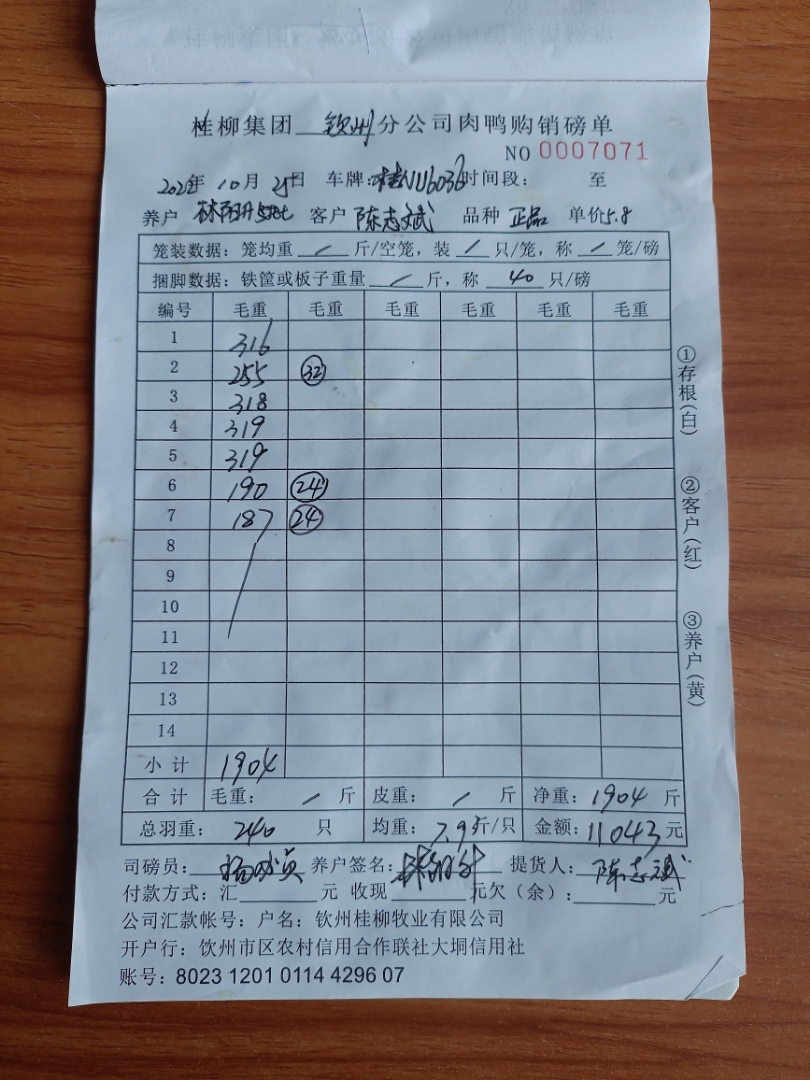 桂柳集团 钦州 分公司肉鸭购销磅单
NO 0007071
年10月25日 车牌:桂NU6036 时间段: 至
养户 客户 陈志斌 品种 正品 单价5.8
笼装数据:笼均重 / 斤/空笼,装 / 只/笼,称 / 笼/磅
捆脚数据:铁筐或板子重量 / 斤,称 40 只/磅
编号 毛重 毛重 毛重 毛重 毛重 毛重
1 316
2 255 32
3 318
4 319
5 319
6 190 24
7 187 24
8
9
10
11
12
13
14
小计 1904
合计 毛重: / 斤 皮重: / 斤 净重:1904 斤
总羽重: 240 只 均重:7.9斤/只 金额:11043元
司磅员: 养户签名: 提货人:陈志斌
付款方式:汇 元 收现 元欠(余): 元
公司汇款帐号:户名:钦州桂柳牧业有限公司
开户行:钦州市区农村信用合作联社大垌信用社
账号:8023 1201 0114 4296 07
①存根(白)
②客户(红)
③养户(黄)